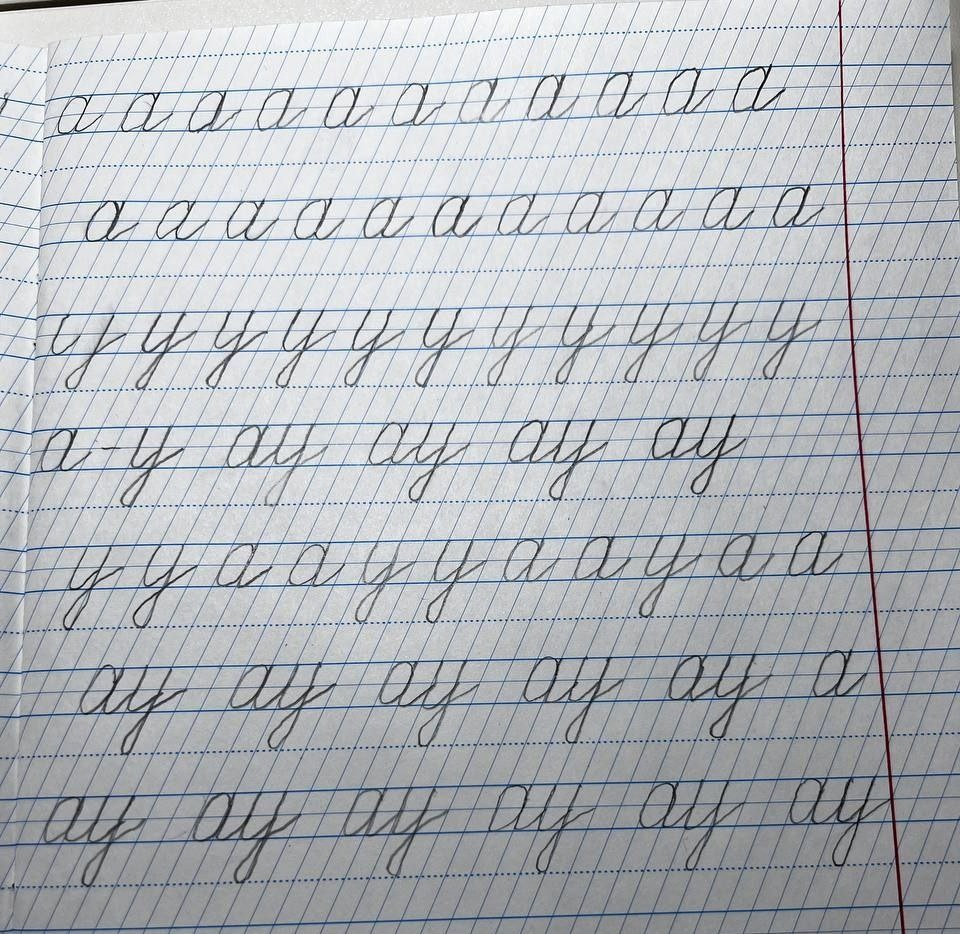 а а а а а а а а а а а
а а а а а а а а а а а
у у у у у у у у у у у
а-у ау ау ау ау
у у а а у у а а у а а
ау ау ау ау ау а
ау ау ау ау ау ау